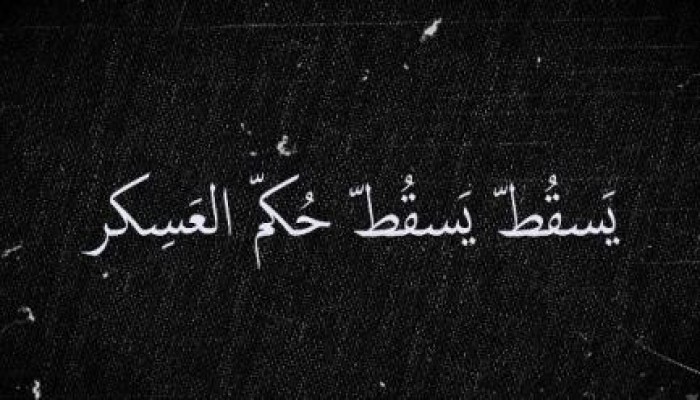 يَسقُطّ يَسقُطّ حُكمّ العَسِكر